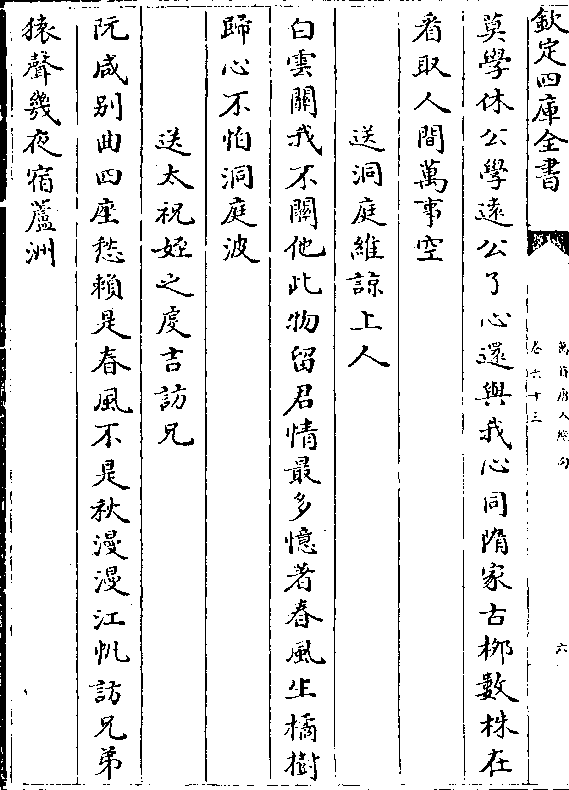 欽定四庫全書
萬首唐人絶句
卷六十三
六
莫學休公學遠公了心還與我心同隋家古栁數株在
看取人間萬事空
送洞庭維諒上人
白雲關我不關他此物留君情最多憶著春風生橘樹
歸心不怕洞庭波
送太祝姪之虔吉訪兄
阮咸别曲四座愁賴是春風不是秋漫漫江帆訪兄弟
猿聲幾夜宿蘆洲